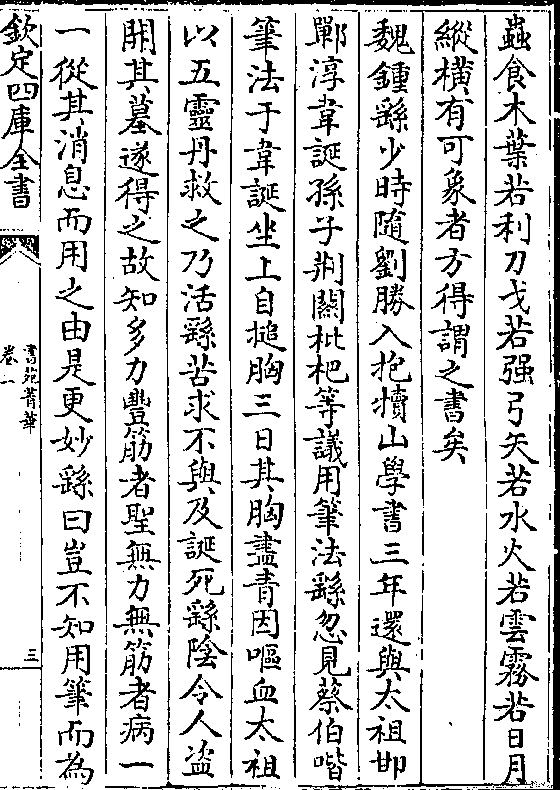 蟲食木葉若利刀戈若强弓矢若水火若雲霧若日月
縱橫有可象者方得謂之書矣
魏鍾繇少時隨劉勝入抱犢山學書三年還與太祖邯
鄲淳韋誕孫子荆關枇杷等議用筆法繇忽見蔡伯喈
筆法于韋誕坐上自搥胸三日其胸盡青因嘔血太祖
以五靈丹救之乃活繇苦求不與及誕死繇陰令人盜
開其墓遂得之故知多力豐筋者聖無力無筋者病一
一從其消息而用之由是更妙繇曰豈不知用筆而為
欽定四庫全書
書苑菁華
卷一
三